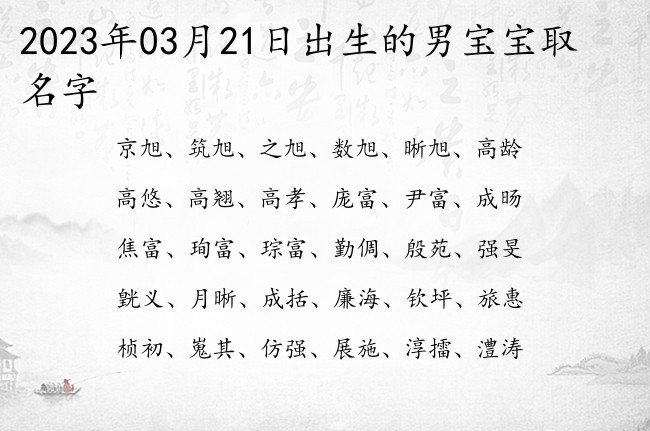 2023年03月21日出生的男宝宝取
名字
京旭、筑旭、之旭、数旭、晰旭、高龄
高悠、高翘、高孝、庞富、尹富、成旸
焦富、珣富、琮富、勤倜、殷苑、强旻
毵义、月晰、成括、廉海、钦坪、旅惠
桢初、嵬其、仿强、展施、淳擂、澧涛